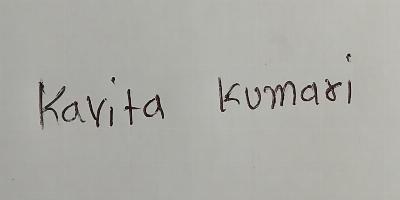 Kavita Kumari